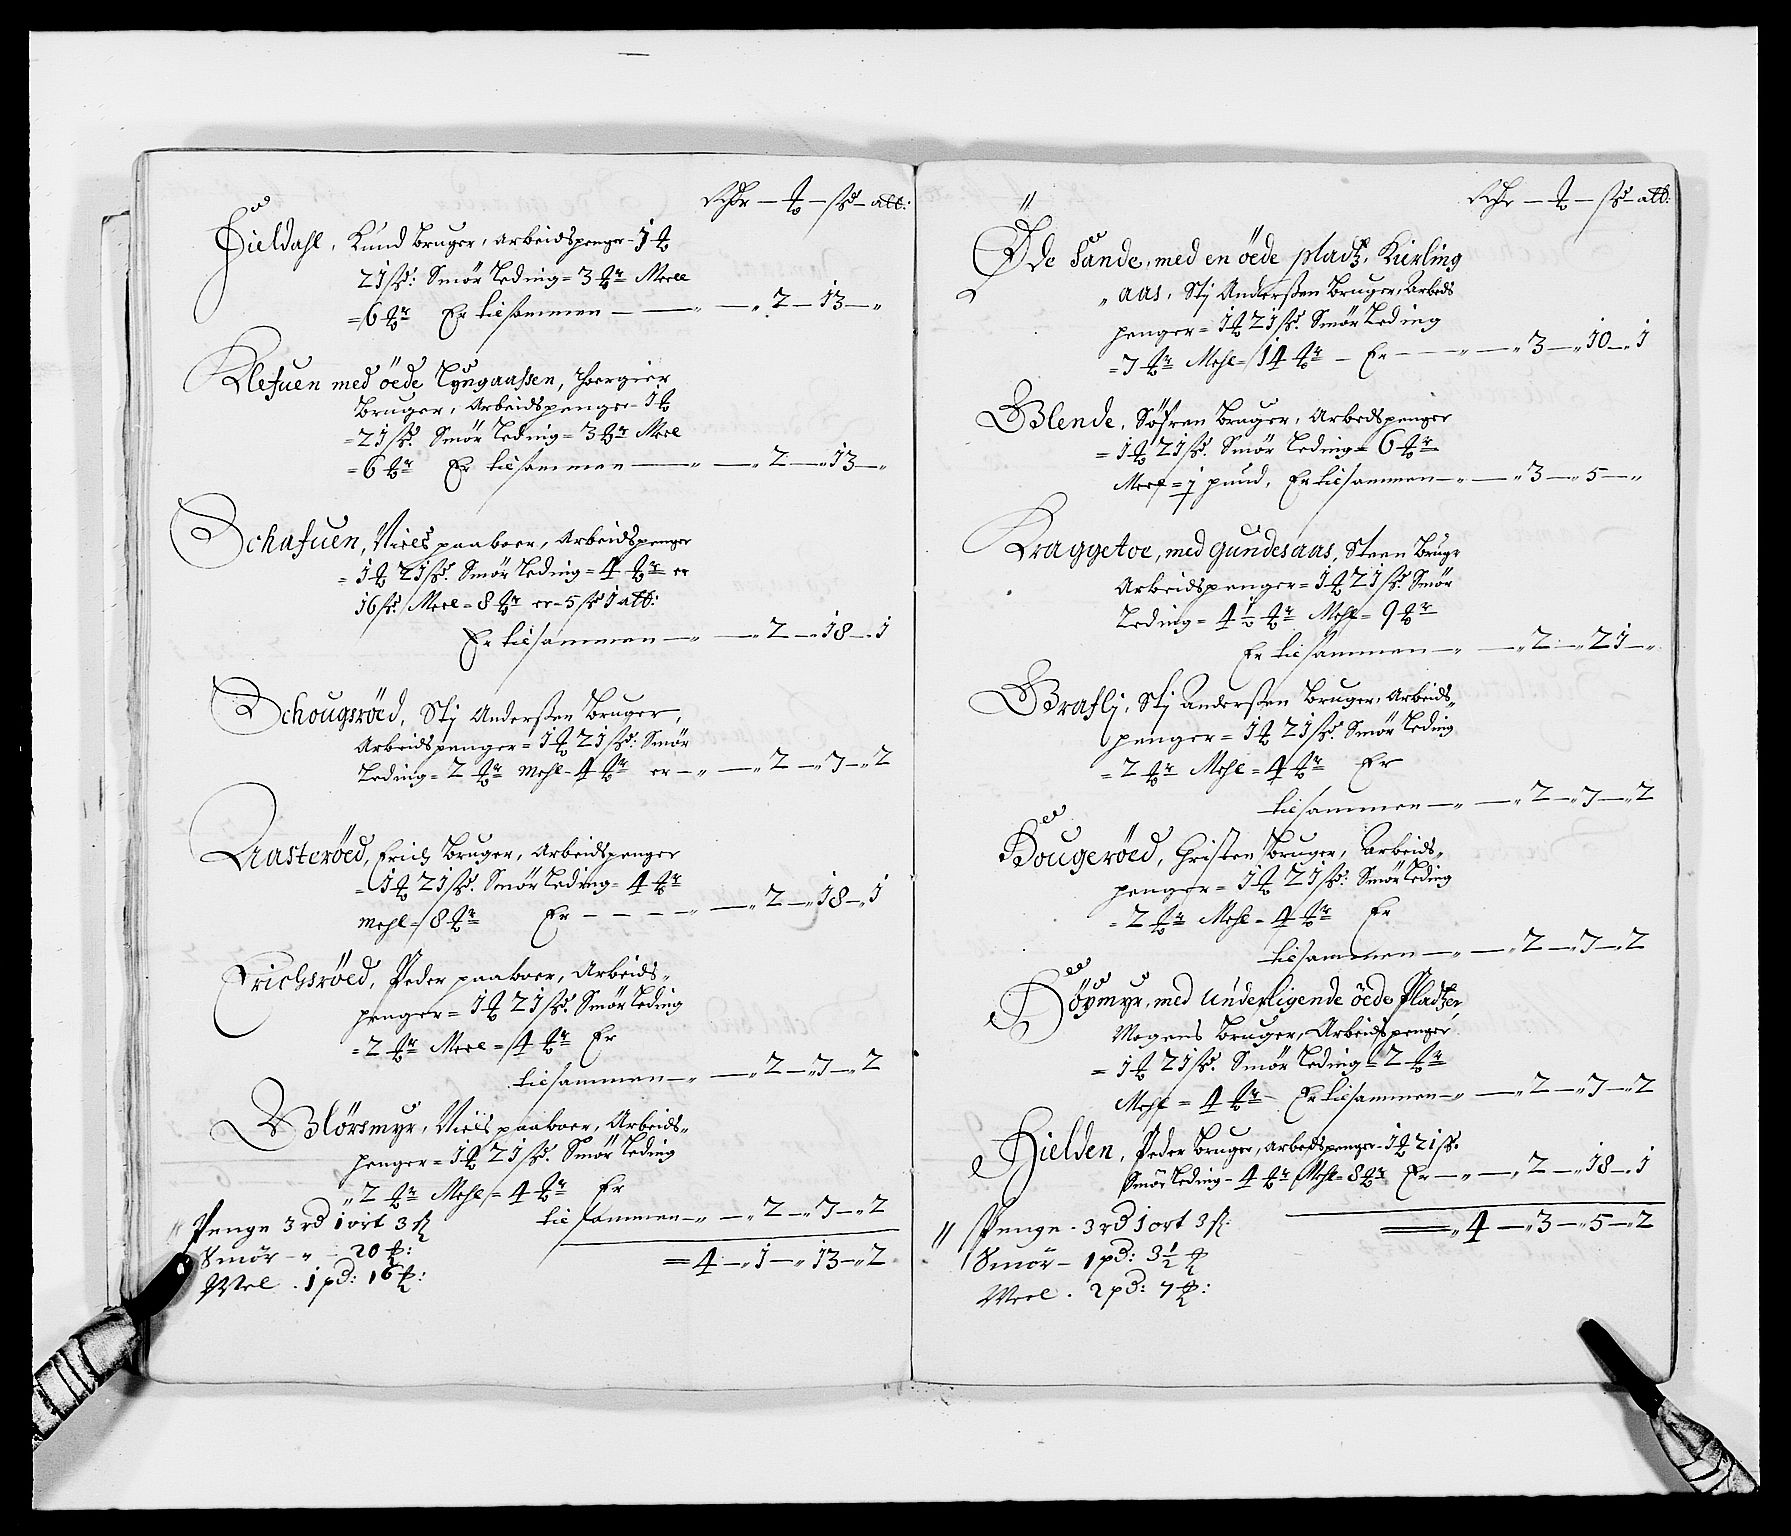 Rdr — ℔ — ß — alb:
Fieldahl, Knud Bruger, arbeidspenger - 1 ℔
21 ß: Smør Leding = 3 ℔r Meel
= 6 ℔r Er tilsammen — — „ — „ 2 — 13 — „
Klefuen med öede Lÿngaassen, Thorgier
Bruger, Arbeidspenger - 1 ℔
= 21 ß: Smør Leding = 3 ℔r Meel
= 6 ℔r Er tilsammen — „ — „ 2 — „ 13 — „
Schafuen, Niels paaboer, Arbeidspenger
= 1 ℔ 21 ß: Smør Leding = 4 ℔r er
16 ß: Meel = 8 ℔r er = 5 ß 1 alb:
Er tilsammen — „ — „ 2 — „ 18 — „ 1
Schougsröed, Stj Anderßen Bruger,
Arbeidspenger = 1 ℔ 21 ß: Smør
Leding = 2 ℔r Mehl = 4 ℔r er — „ — „ 2 — „ 7 — „ 2
Aasteröed, Erich Bruger, Arbeidspenger
= 1 ℔ 21 ß: Smør Leding = 4 ℔r
Mehl = 8 ℔r Er — — — — „ — „ 2 — „ 18 — „ 1
Erichsröed, Peder paaboer, Arbeids„
penger = 1 ℔ 21 ß: Smør Leding
= 2 ℔r Meel = 4 ℔r Er
tilsammen — „ — „ 2 — „ 7 — „ 2
Blörsmyr, Niels paaboer, Arbeids„
penger = 1 ℔ 21 ß: Smør Leding
„ 2 ℔r Mehl = 4 ℔r Er
tilsammen — „ — „ 2 — „ 7 — „ 2
„ Penge 3 rd 1 ort 3 ß
Smör - „ - 20 ℔:
= 4 — „ 1 — „ 13 — „ 2
Mel . 1 pd: 16 ℔:
Rdr — ℔ — ß — alb:
Öde Sande, med en öede pladtz, Kierling
„ aas, Stj Anderßen Bruger, Arbeds
penger = 1 ℔ 21 ß: Smør Leding
= 7 ℔r Mehl = 14 ℔r — Er — — — „ — „ 3 — „ 10 — „ 1
Blende, Söfren Bruger, Arbedspenger
= 1 ℔ 21 ß: Smør Leding = 6 ℔r
Meel = 1 pund, Er tilsammen — „ — „ 3 — „ 5 — „
Kraggetoe, med Gundesaas, Steen Bruger
Arbeidspenger = 1 ℔ 21 ß: Smør
Leding = 4 ½ ℔r Mehl = 9 ℔r
Er tilsammen — „ — „ 2 — „ 21 — „
Braflj, Stj Anderßen Bruger, Arbeids„
penger = 1 ℔ 21 ß: Smør Leding
= 2 ℔r Mehl = 4 ℔r Er
tilsammen — „ — „ 2 — „ 7 — „ 2
Bougeröed, Christen Bruger, Arbeids„
penger = 1 ℔ 21 ß: Smør Leding
= 2 ℔r Mehl = 4 ℔r Er
tilsammen — „ — „ 2 — „ 7 — „ 2
Döÿmyr, med Underligende öede Pladtzer,
Mogens Bruger, Arbeidspenger
= 1 ℔ 21 ß: Smør Leding = 2 ℔r
Mehl = 4 ℔r Er tilsammen — „ — „ 2 — „ 7 — „ 2
Fielden, Peder Bruger, arbedspenger - 1 ℔ 21 ß:
Smør Leding - 4 ℔r Mehl = 8 ℔r Er — „ — „ 2 — „ 18 — „ 1
„ Penge . 3 rd 1 ort 3 ß.
= „ 4 — „ 3 — „ 5 — „ 2
Smör - 1 pd: 3 ½ ℔
Meel . 2 pd: 7 ℔: